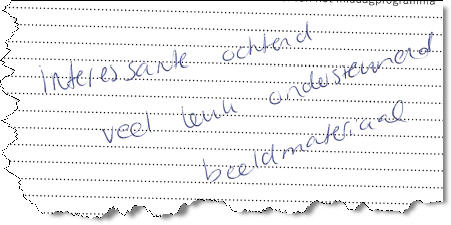 middagprogramma
interessante ochtend
veel leuk ondersteunend
beeldmateriaal